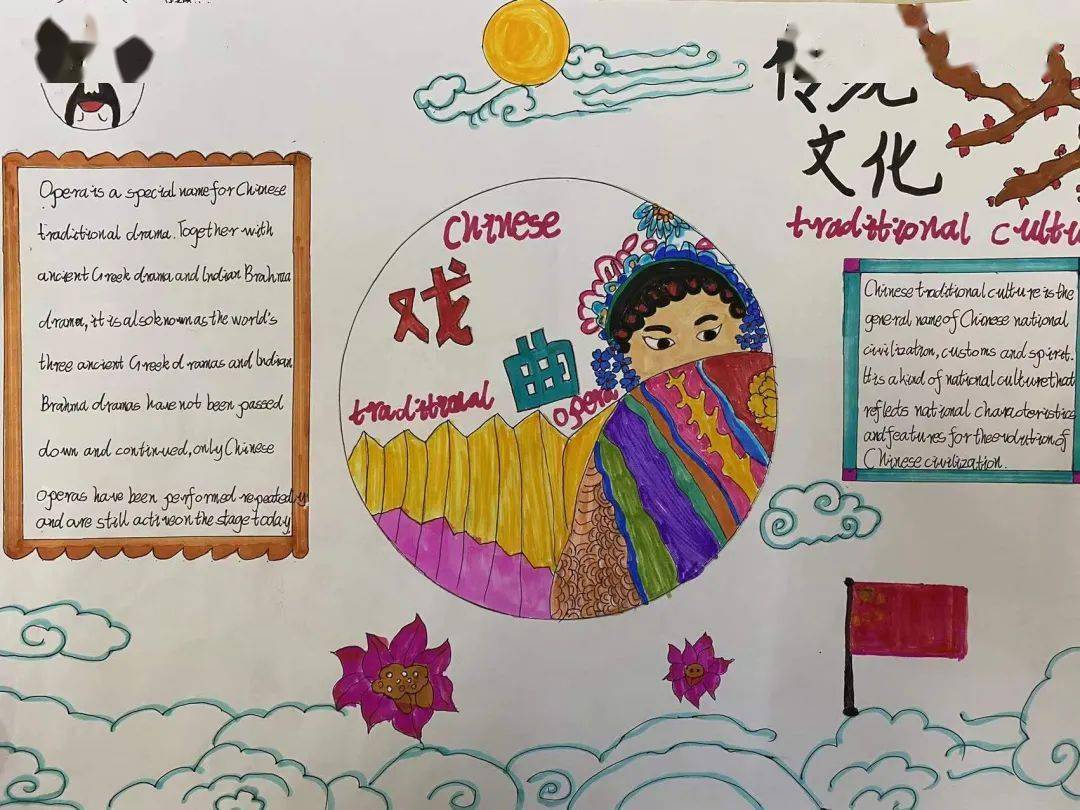 传统
文化
traditional cultu
Opera is a special name for Chinese
traditional drama. Together with
ancient Greek drama and Indian Brahma
drama, it is also known as the world's
three ancient Greek dramas and Indian
Brahma dramas have not been passed
down and continued, only Chinese
operas have been performed repeatedly
and are still active on the stage today
Chinese
戏
曲
traditional
opera
Chinese traditional culture is the
general name of Chinese national
civilization, customs and spirit.
It is a kind of national culture that
reflects national characteristics
and features for the evolution of
Chinese civilization.